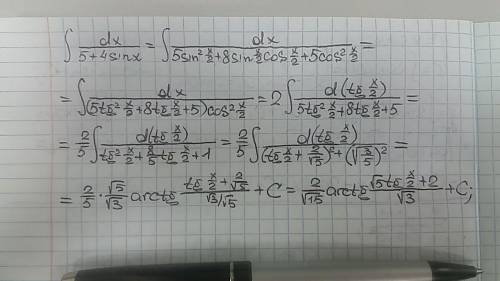 ∫ dx / (5+4sinx) = ∫ dx / (5sin² x/2 + 8sin x/2 cos x/2 + 5cos² x/2) =
= ∫ dx / ((5tg² x/2 + 8tg x/2 + 5)cos² x/2) = 2 ∫ d(tg x/2) / (5tg² x/2 + 8tg x/2 + 5) =
= 2/5 ∫ d(tg x/2) / (tg² x/2 + 8/5 tg x/2 + 1) = 2/5 ∫ d(tg x/2) / ((tg x/2 + 2/√5)² + (√(3/5))²) =
= 2/5 · √5/√3 arctg (tg x/2 + 2/√5) / (√3/√5) + C = 2/√15 arctg (√5 tg x/2 + 2) / √3 + C;